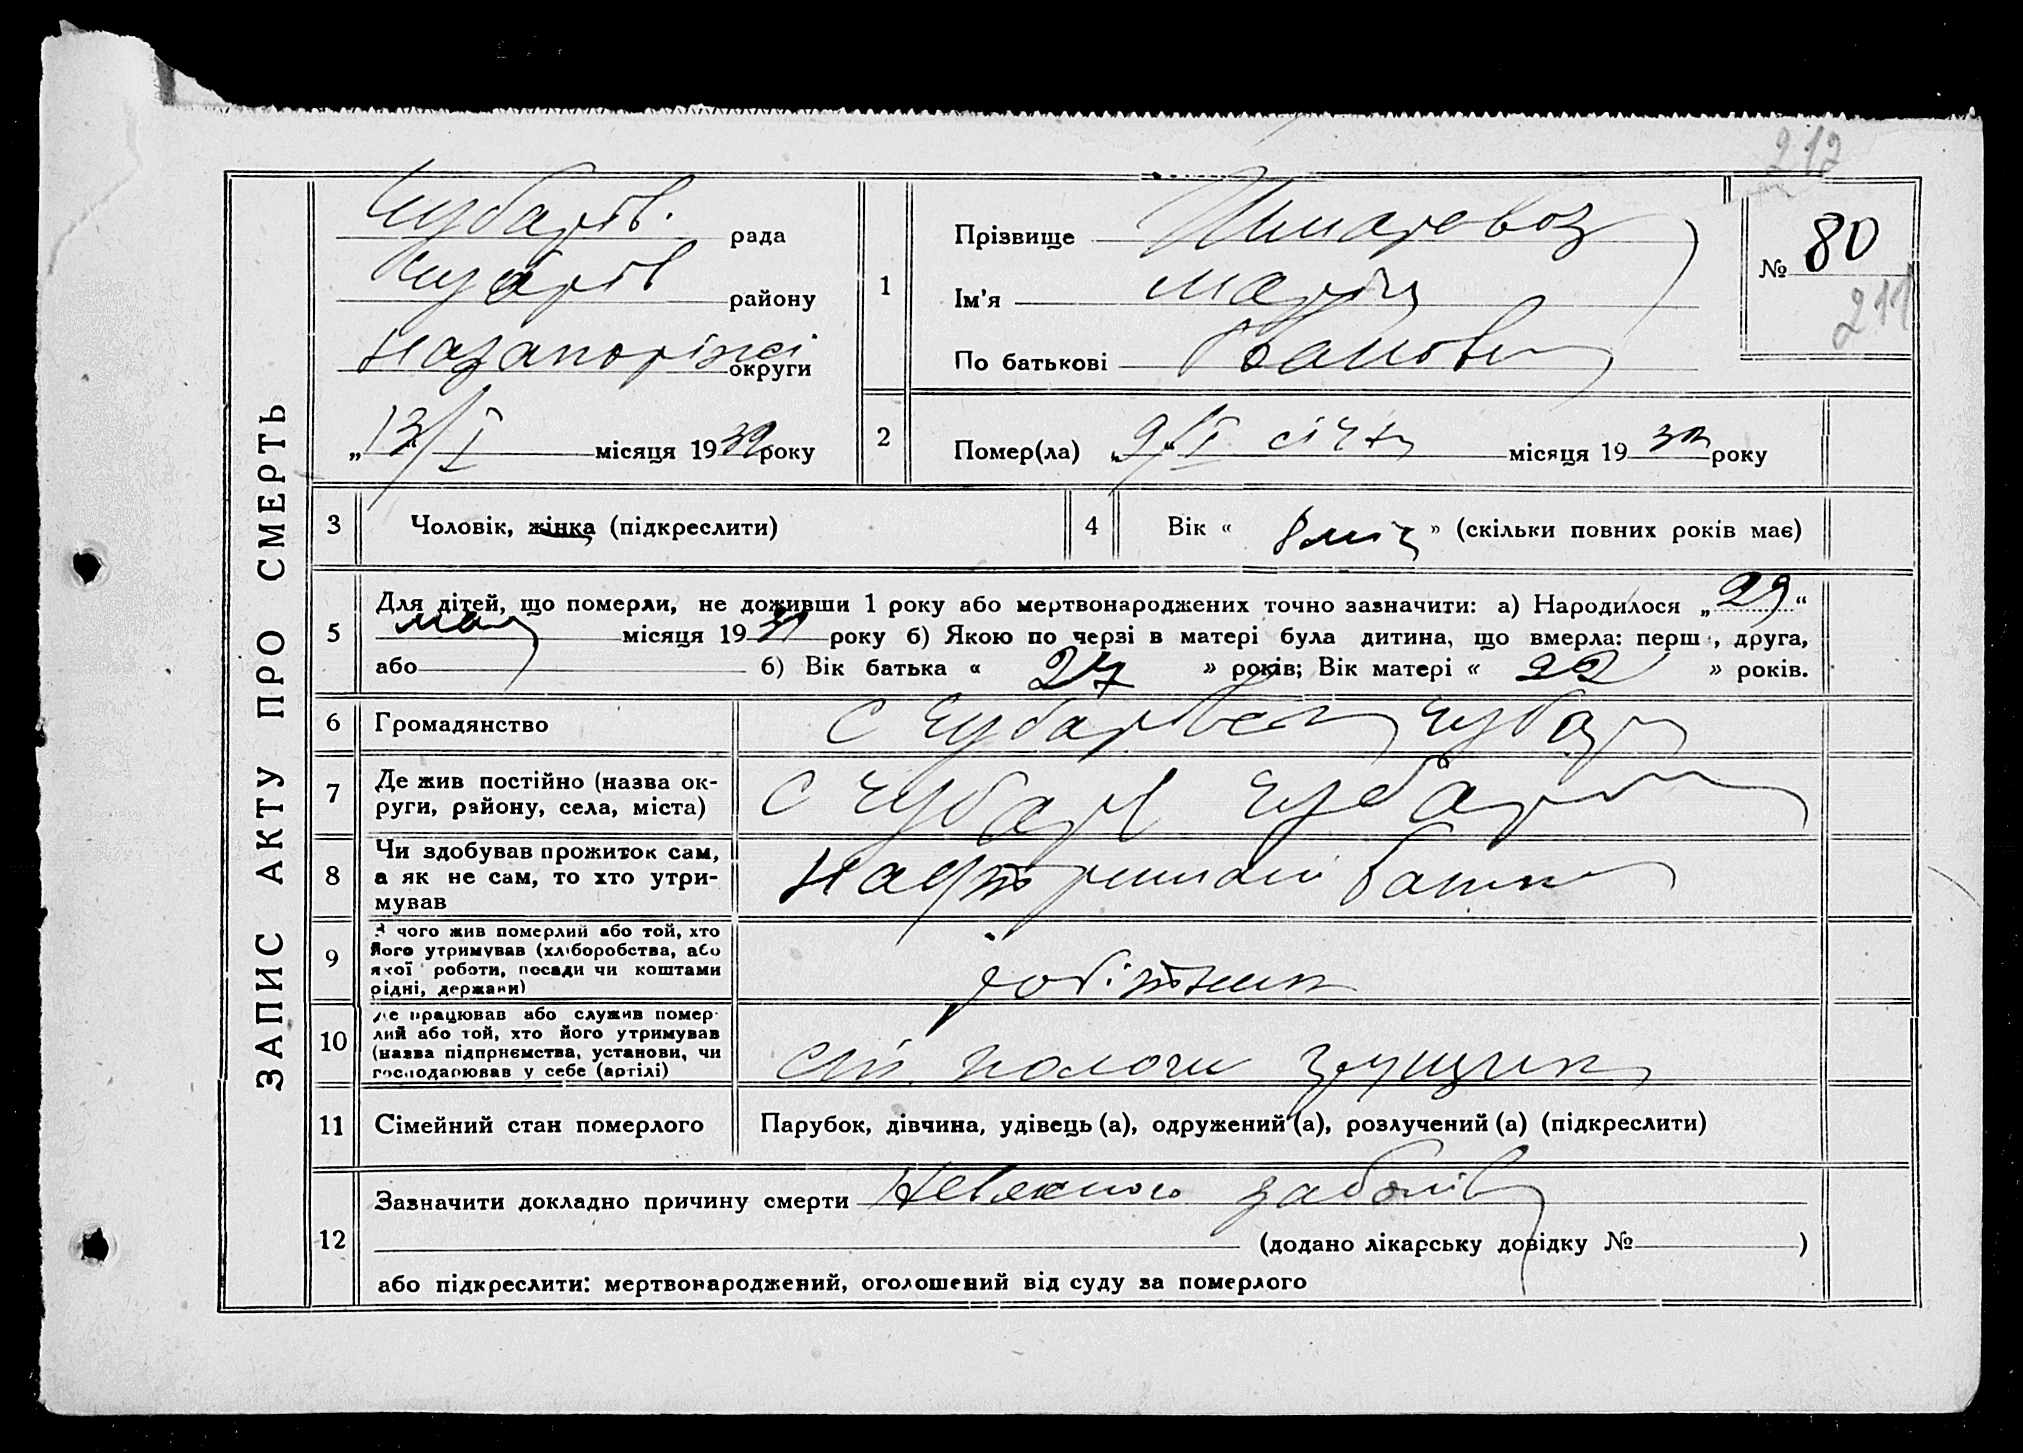 212
ЗАПИС АКТУ ПРО СМЕРТЬ
Чубарів. рада
Чубарів району
Назапоріжжі округи
„13/I місяця 1932 року
1
Прізвище
Ім'я Марія
По батькові Іванов
№ 80
211
2
Помер(ла) „9/I січня місяця 1932 року
3
Чоловік, жінка (підкреслити)
4
Вік « 8 міс » (скільки повних років має)
5
Для дітей, що померли, не доживши 1 року або мертвонароджених точно зазначити: а) Народилося „29“
мая місяця 1931 року б) Якою по черзі в матері була дитина, що вмерла: перш , друга,
або б) Вік батька « 27 » років; Вік матері « 22 » років.
6
Громадянство
с Чубарівсь Чубар
7
Де жив постійно (назва ок-
руги, району, села, міста)
с Чубарі Чубар
8
Чи здобував прожиток сам,
а як не сам, то хто утри-
мував
батьк
9
З чого жив померлий або той, хто
його утримував (хліборобства, або
якої роботи, посади чи коштами
рідні, держави)
робітник
10
Де працював або служив помер-
лий або той, хто його утримував
(назва підприємства, установи, чи
господарював у себе (артілі)
ст. Пологи грущик
11
Сімейний стан померлого
Парубок, дівчина, удівець (а), одружений (а), розлучений (а) (підкреслити)
12
Зазначити докладно причину смерти
(додано лікарську довідку № )
або підкреслити: мертвонароджений, оголошений від суду за померлого